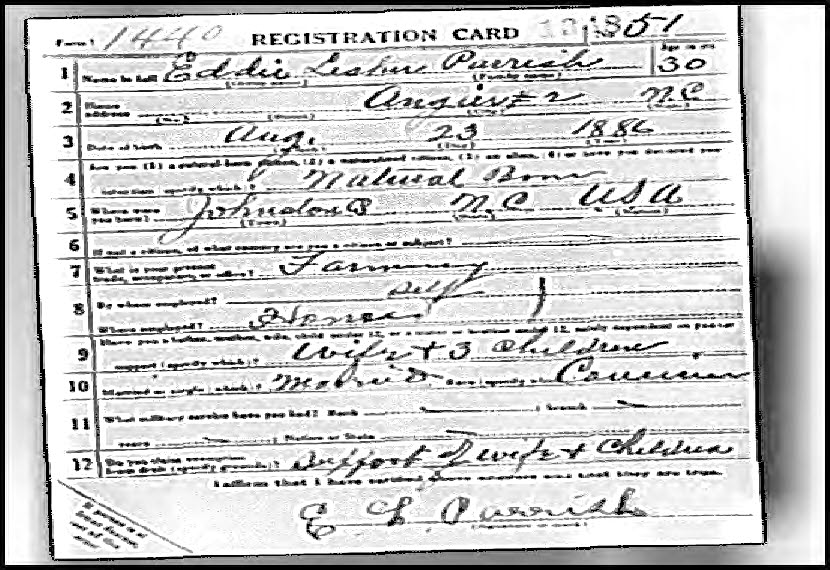 Form 1 1440 REGISTRATION CARD 51
Age in yrs
1 Name in full Eddie Lester Parrish 30
(Given name) (Family name)
2 Home address Angier # 2 N.C.
(No.) (Street) (City)
3 Date of birth Aug. 23 1886
(Month) (Day) (Year)
Are you (1) a natural born citizen, (2) a naturalized citizen, (3) an alien, (4) or have you declared your
4 intention (specify which)? Natural Born
5 Where were you born? Johnston N.C. USA
(Town) (State) (Nation)
6 If not a citizen, of what country are you a citizen or subject?
7 What is your present trade, occupation, or office? Farming
8 By whom employed? Self
Where employed? Home
Have you a father, mother, wife, child under 12, or a sister or brother under 12, solely dependent on you for
9 support (specify which)? Wife + 3 Children
10 Married or single (which)? Married Race (specify which)?
11 What military service have you had? Rank ; branch
years ; Nation or State
12 Do you claim exemption from draft (specify grounds)? Support of wife + Children
I affirm that I have verified above answers and that they are true.
E L Parrish
(Signature or mark)
If person is of African descent, cut off this corner